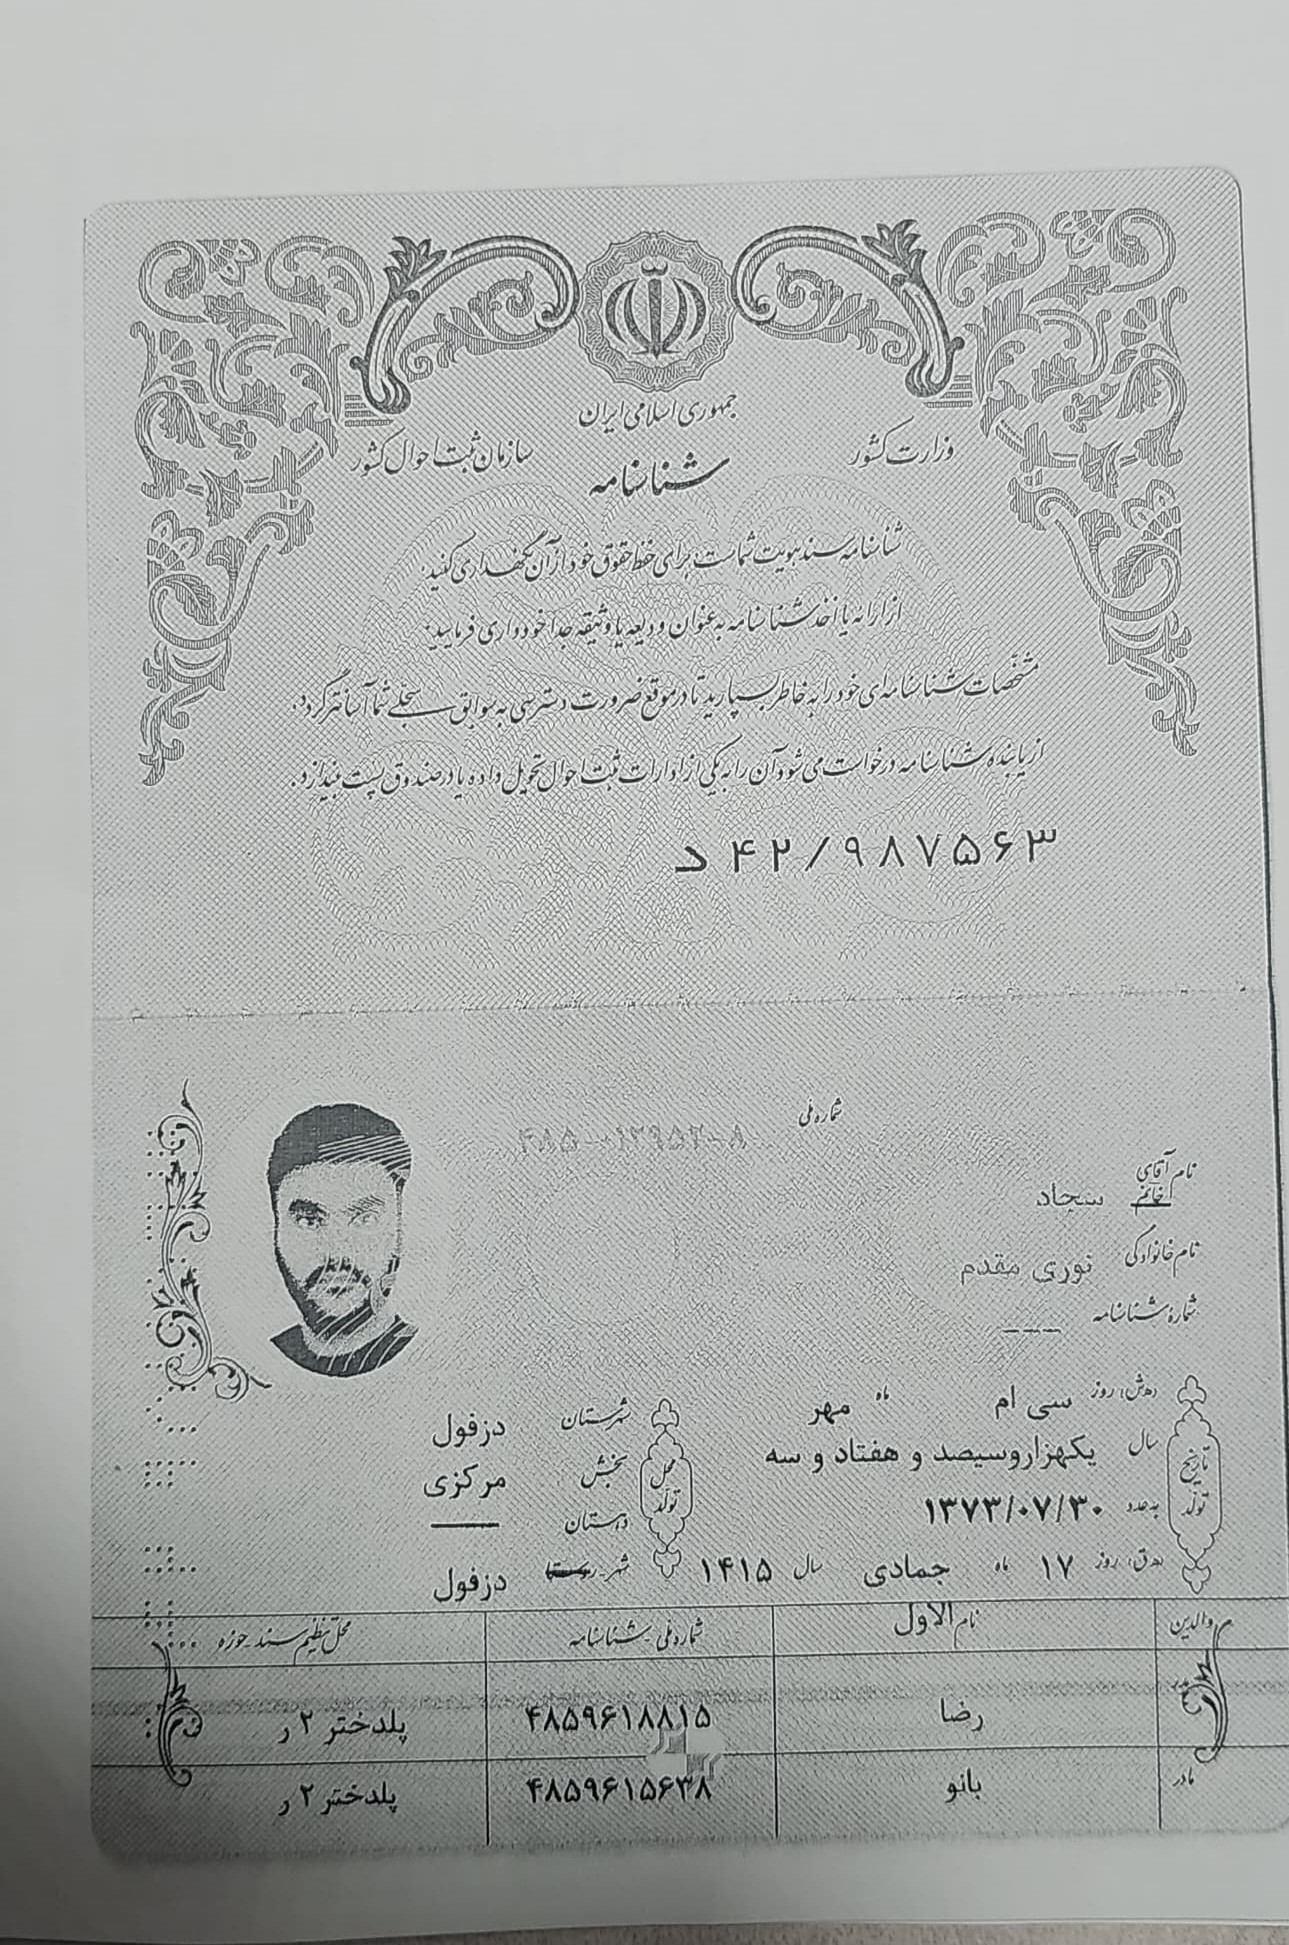 جمهوری اسلامی ایران
وزارت کشور
سازمان ثبت احوال کشور
شناسنامه
شناسنامه سند هویت شماست، برای حفظ حقوق خود از آن نگهداری کنید.
از ارائه یا اخذ شناسنامه به عنوان ودیعه یا وثیقه جداً خودداری فرمایید.
مشخصات شناسنامه‌ای خود را به خاطر بسپارید تا در موقع ضرورت دسترسی به سوابق سجلی شما آسانتر گردد.
از یابنده شناسنامه درخواست می‌شود آن را به یکی از ادارات ثبت احوال تحویل داده یا در صندوق پست بیندازد.
د ۴۲/۹۸۷۵۶۳
شماره ملی
نام آقای خانم سجاد
نام خانوادگی نوری مقدم
شماره شناسنامه ---
تاریخ تولد
(ه‍.ش) روز سی ام ماه مهر
سال یکهزاروسیصد و هفتاد و سه
به عدد ۱۳۷۳/۰۷/۳۰
(ه‍.ق) روز ۱۷ ماه جمادی الاول سال ۱۴۱۵
محل تولد
شهرستان دزفول
بخش مرکزی
دهستان
شهر - روستا دزفول
والدین نام شماره ملی - شناسنامه محل تنظیم سند - حوزه
پدر رضا ۴۸۵۹۶۱۸۸۱۵ پلدختر ۲ ر
مادر بانو ۴۸۵۹۶۱۵۶۳۸ پلدختر ۲ ر